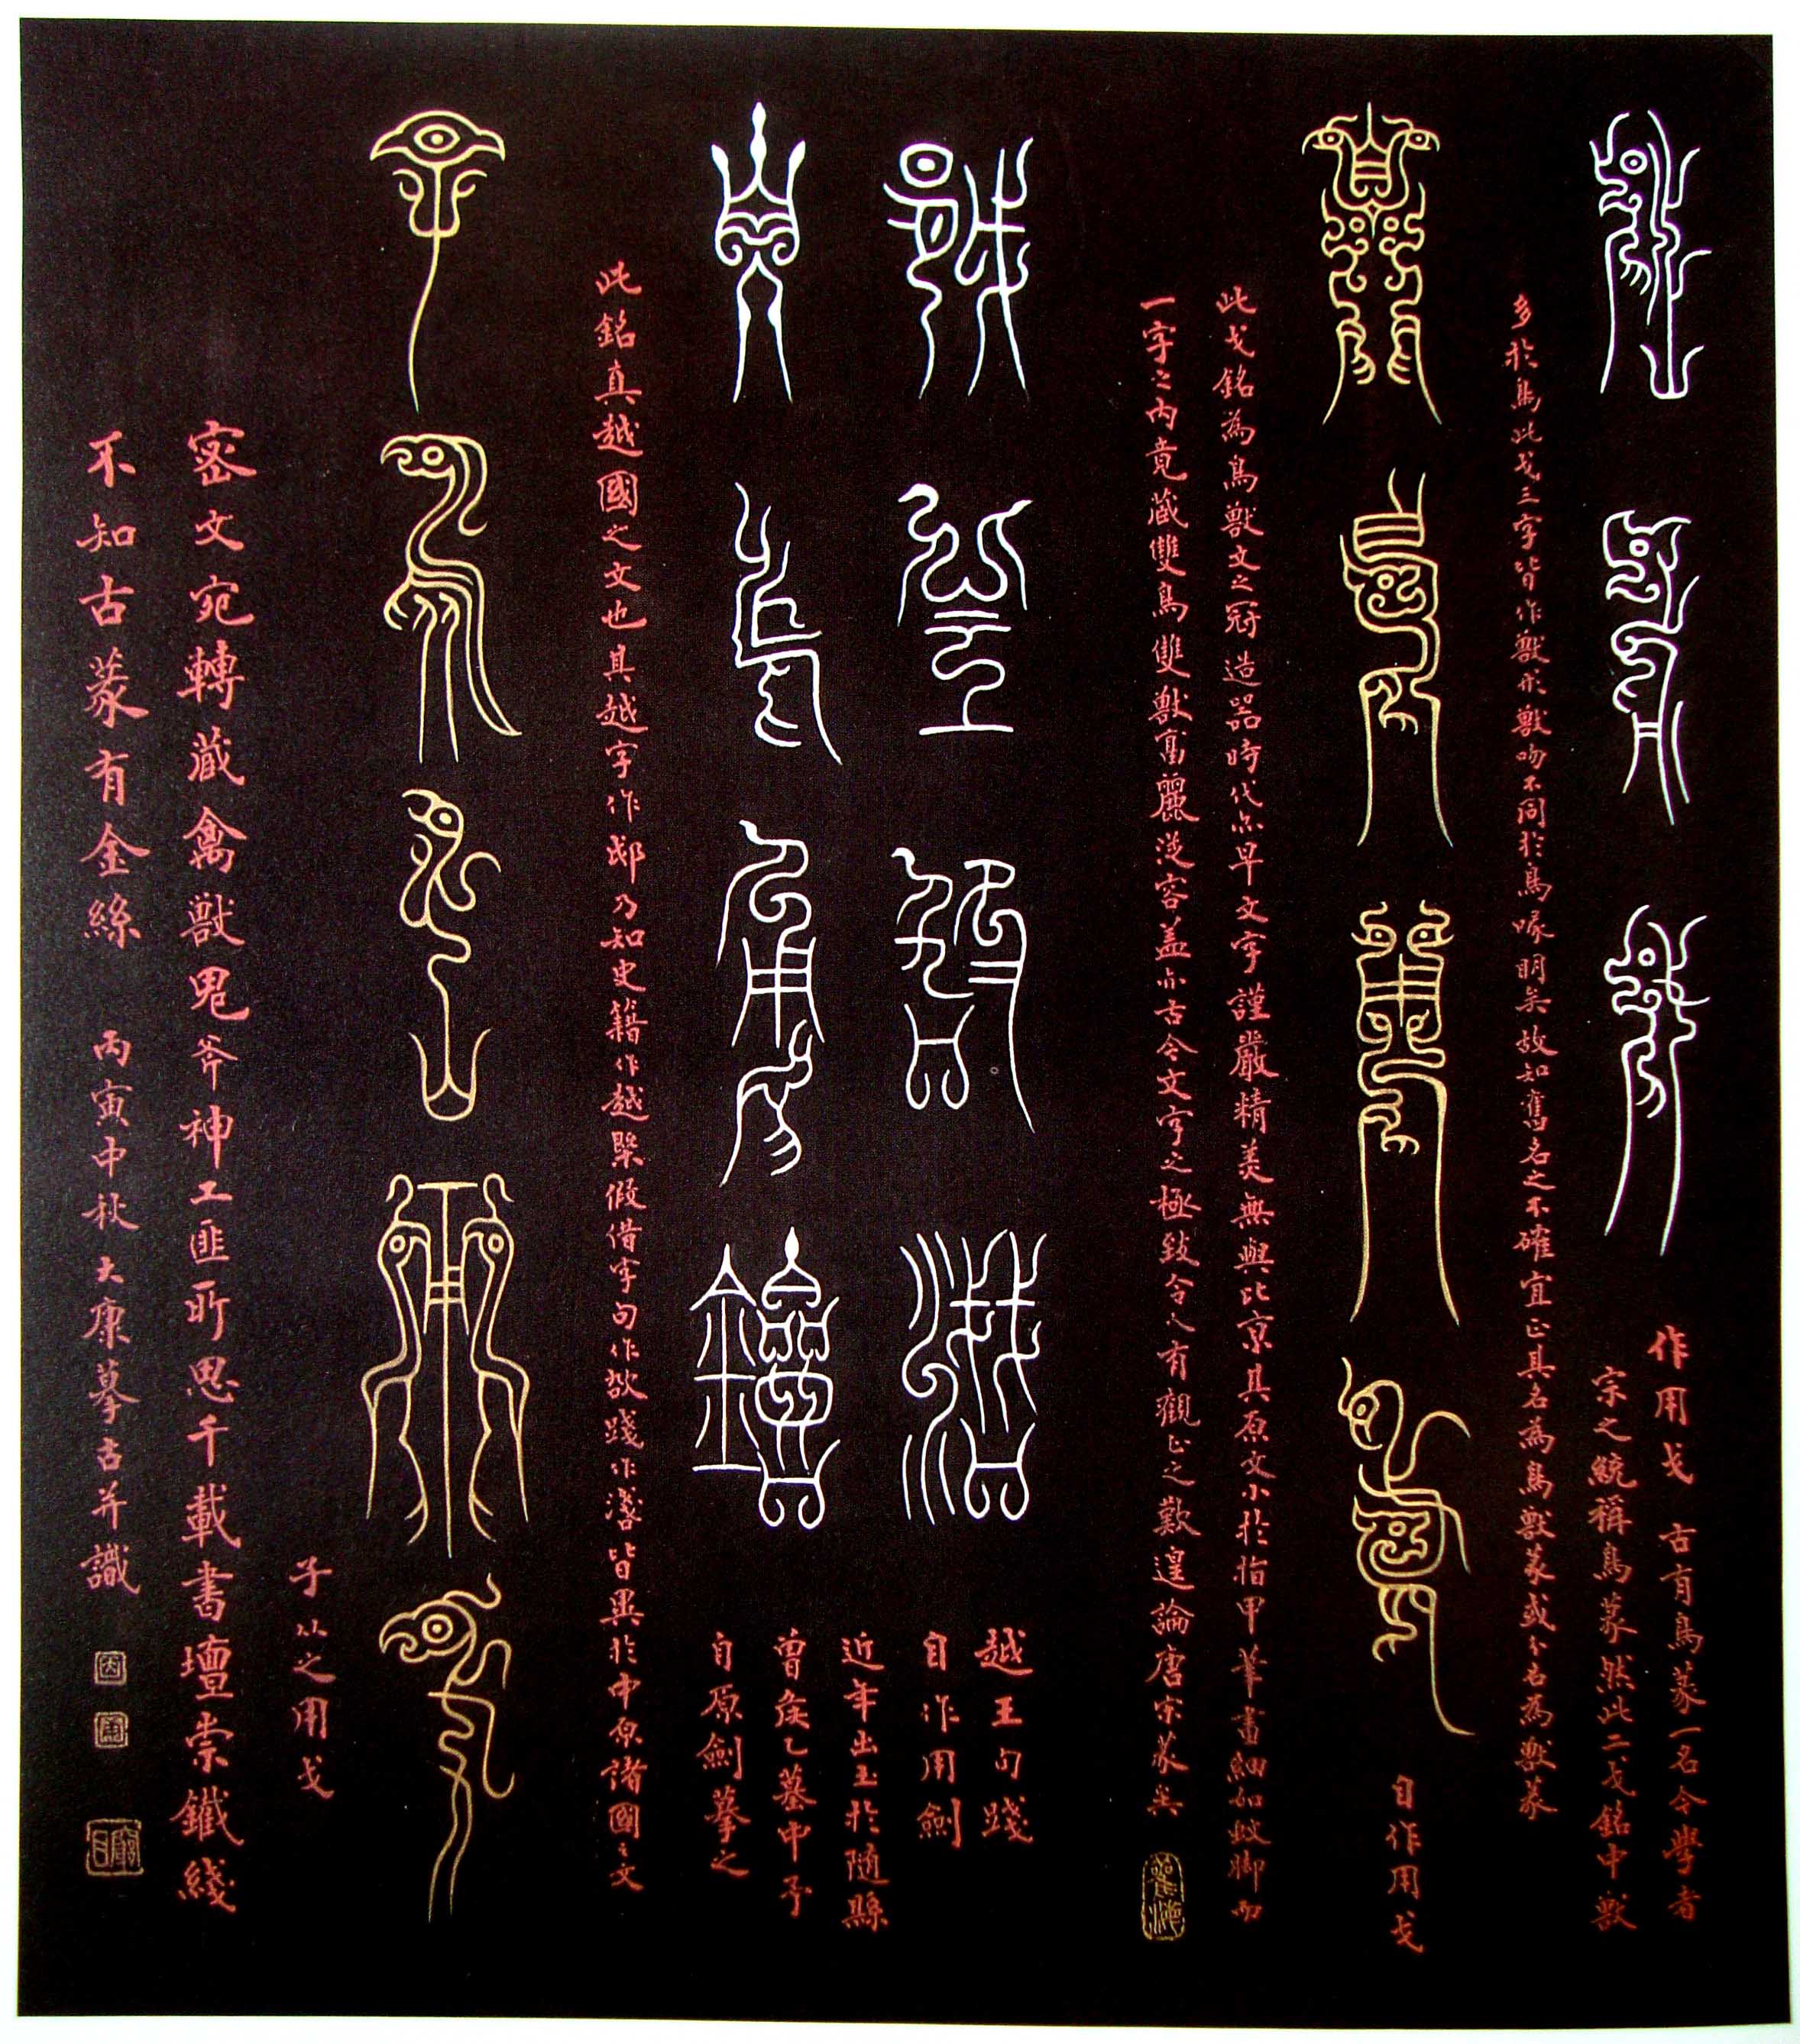 作用戈
作用戈 古有鳥篆一名今學者
宗之統稱鳥篆然此二戈銘中獸
多於鳥此戈三字皆作獸形獸吻不同於鳥喙明矣故知舊名之不確宜正其名為鳥獸篆或分名為獸篆
自作用戈
自作用戈
此戈銘為鳥獸文之冠造器時代亦早文字謹嚴精美無與比京其原文小於指甲筆畫細如蚊腳而
一字之內竟藏雙鳥雙獸富麗從容蓋亦古今文字之極致令人有觀止之歎遑論唐宋篆矣
越王句踐
自作用劍
越王句踐
自作用劍
近年出土於隨縣
曾侯乙墓中予
自原劍摹之
此銘真越國之文也其越字作乃知史籍作越槩假借字句作踐作淺皆異於中原諸國之文
子以之用戈
子以之用戈
密文宛轉藏禽獸鬼斧神工匪所思千載書壇崇鐵綫
不知古篆有金絲 丙寅中秋大康摹古并識